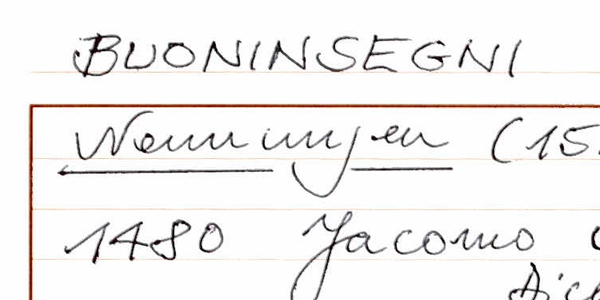 BUONINSEGNI
Nennungen (15
1480 Jacomo